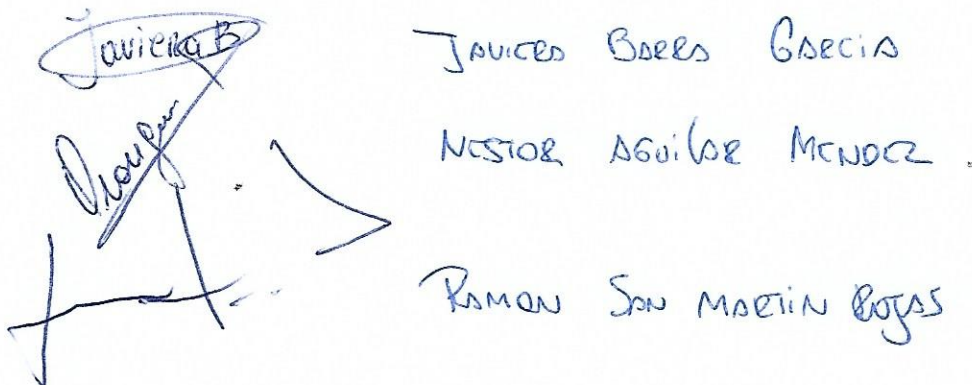 Javiera B
JAVIERA BARRA GARCIA
NESTOR AGUILAR MENDEZ.
RAMON SAN MARTIN ROJAS